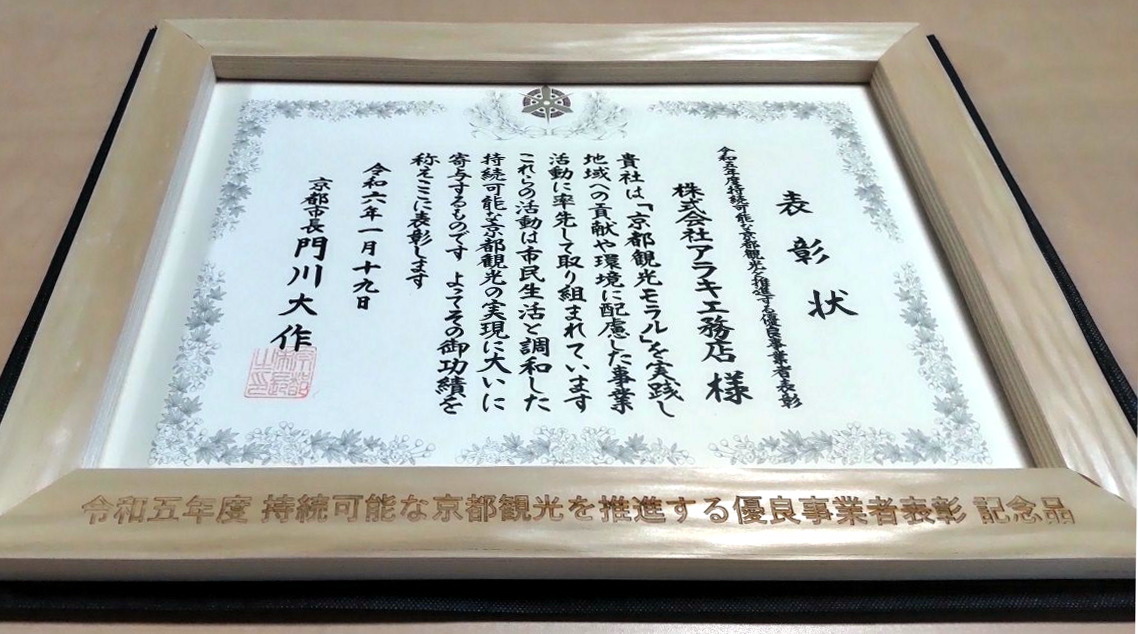 表彰状
令和五年度持続可能な京都観光を推進する優良事業者表彰
株式会社アラキ工務店 様
貴社は、「京都観光モラル」を実践し
地域への貢献や環境に配慮した事業
活動に率先して取り組まれています
これらの活動は市民生活と調和した
持続可能な京都観光の実現に大いに
寄与するものです よってその御功績を
称えここに表彰します
令和六年一月十九日
京都市長 門川大作
京都市長之印
令和五年度 持続可能な京都観光を推進する優良事業者表彰 記念品